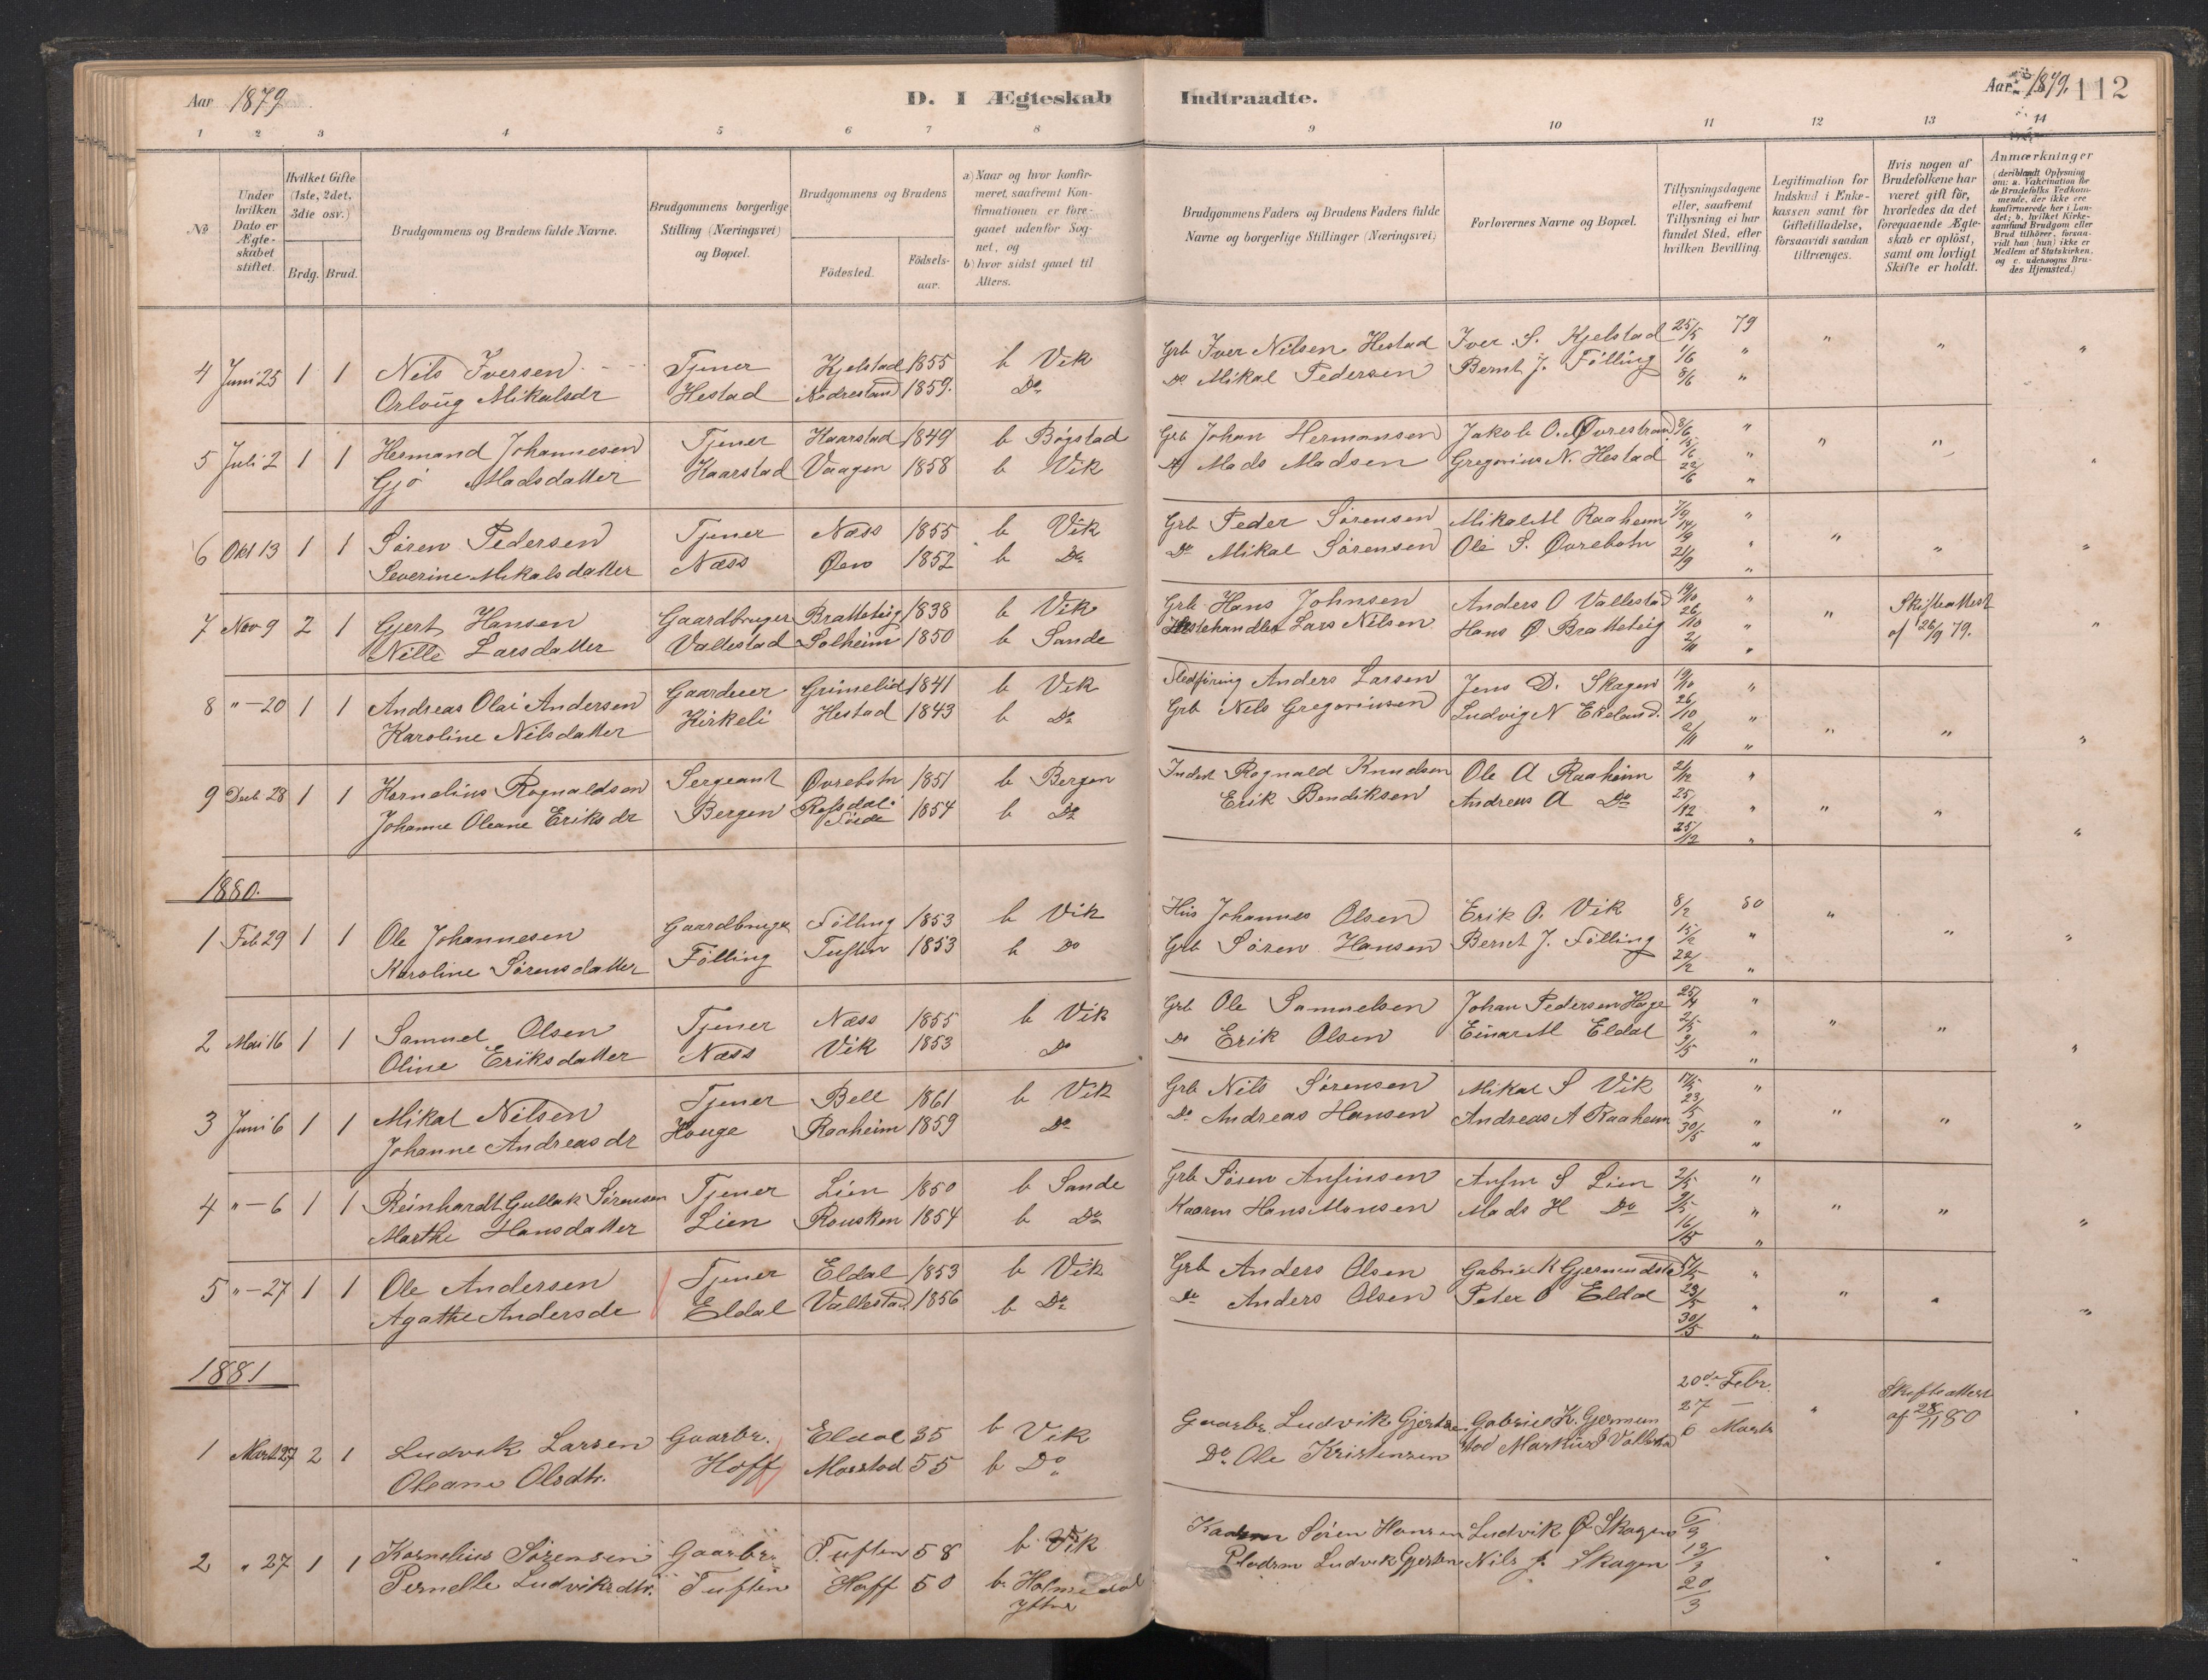 Aar 1879 D. I Ægteskab Indtraadte. Aar 1879. 112
1 2 3 4 5 6 7 8 9 10 11 12 13 14
№
Under hvilken Dato er Ægteskabet stiftet.
Hvilket Gifte (1ste, 2det, 3die osv.)
Brdg. Brud.
Brudgommens og Brudens fulde Navne.
Brudgommens borgerlige Stilling (Næringsvei) og Bopæl.
Brudgommens og Brudens
Fødested. Fødselsaar.
a) Naar og hvor konfirmeret, saafremt Konfirmationen er foregaaet udenfor Sognet, og
b) hvor sidst gaaet til Alters.
Brudgommens Faders og Brudens Faders fulde Navne og borgerlige Stillinger (Næringsvei)
Forlovernes Navne og Bopæl.
Tillysningsdagene eller, saafremt Tillysning ei har fundet Sted, efter hvilken Bevilling.
Legitimation for Indskud i Enkekassen samt for Giftetilladelse, forsaavidt saadan tiltrænges.
Hvis nogen af Brudefolkene har været gift før, hvorledes da det foregaaende Ægteskab er opløst, samt om lovligt Skifte er holdt.
Anmærkninger (deriblandt Oplysning om: a. Vakcination for de Brudefolks Vedkommende, der ikke ere konfirmerede her i Landet; b. hvilket Kirkesamfund Brudgom eller Brud tilhører, forsaavidt han (hun) ikke er Medlem af Statskirken, og c. udensogns Brudes Hjemsted.)
4 Juni 25 1 1 Nils Iversen Tjener Kjelstad 1855 b Vik Grb Iver Nilsen Hestad Iver S. Kjelstad 25/5 79 " " "
Orloug Mikalsdr Hestad Nedrestrand 1859. Do Do Mikal Pedersen Bernt J. Fölling 1/6 " 8/6 "
5 Juli 2 1 1 Hermand Johannesen Tjener Kaarstad 1849 b Bögstad Grb Johan Hermansen Jakob O. Øvrestrand 8/6 " " " "
Gjö Madsdatter Kaarstad Vaagen 1858 b Vik Do Mads Madsen Gregorius N. Hestad 15/6 " 22/6 "
6 Okt 13 1 1 Sören Pedersen Tjener Næss 1855 b Vik Grb Peder Sörensen Mikal M Raaheim 7/9 " " " "
Severine Mikalsdatter Næss Øren 1852 b Do Do Mikal Sörensen Ole S. Øvrebotn 14/9 " 21/9 "
7 Nov 9 2 1 Gjert Hansen Gaardbruger Bratteteig 1838 b Vik Grb Hans Johnsen Anders O Vallestad 19/10 " " Skifteattest "
Nille Larsdatter Vallestad Solheim 1850 b Sande Hestehandler Lars Nilsen Hans Ø Bratteteig 26/10 " 2/11 " af 26/9 79.
8 " - 20 1 1 Andreas Olai Andersen Gaardeier Grimelid 1841 b Vik Stedföring Anders Larsen Jens D. Skagen 19/10 " " " "
Karoline Nilsdatter Kirkeli Hestad 1843 b Do Grb Nils Gregoriusen Ludvig N Ekeland. 26/10 " 2/11 "
9 Decb 28 1 1 Kornelius Rognaldsen Sergeant Øvrebotn 1851 b Bergen Inderst Rognald Knudsen Ole A Raaheim 21/12 " " " "
Johanne Oleane Eriksdr Bergen 1854 b Do Erik Bendiksen Andreas A Do 25/12 " 25/12 "
1880.
1 Feb 29 1 1 Ole Johannesen Gaardbruger Fölling 1853 b Vik Hus Johannes Olsen Erik O. Vik 8/2 80 " " "
Karoline Sörensdatter Fölling Tuften 1853 b Do Grb Sören Hansen Bernt J. Fölling 15/2 " 22/2 "
2 Mai 16 1 1 Samuel Olsen Tjener Næss 1855 b Vik Grb Ole Samuelsen Johan Pedersen Hage 25/4 " " " "
Oline Eriksdatter Næss Vik 1853 Do Do Erik Olsen Einar M Eldal 2/5 " 9/5 "
3 Juni 6 1 1 Mikal Nilsen Tjener Bell 1861 b Vik Grb Nils Sörensen Mikal S Vik 17/5 " " " "
Johanne Andreasdr Houge Raaheim 1859 Do Do Andreas Hansen Andreas A Raaheim 23/5 " 30/5 "
4 " - 6 1 1 Reinhardt Gullak Sörensen Tjener Lien 1850 b Sande Grb Sören Anfinsen Anfin S Lien 2/5 " " " "
Marthe Hansdatter Lien Rousken 1854 b Do Kaarm Hans Monsen Mads H Do 9/5 " 16/5 "
5 " - 27 1 1 Ole Andersen Tjener Eldal 1853 b Vik Grb Anders Olsen Gabriel K Gjermundstad 17/5 " " " "
Agathe Andersdr Eldal Vallestad 1856 b Do Do Anders Olsen Peter O Eldal 23/5 " 30/5 "
1881
1 Mart 27 2 1 Ludvik Larsen Gaarbr. Eldal 35 b Vik Gaarbr. Ludvik Gjertsen Gabriel K. Gjermundstad 20de Febr. 27 - 6 Marts " Skifteattest af 28/11 80 "
Oleane Olsdtr. Hoff Morstad 55 b Do Do Ole Kristensen Markus Vallestad
2 " 27 1 1 Kornelius Sörensen Gaarbr. Tuften 58 b. Vik Kaarm Sören Hansen Ludvik O Skagen 6/3 " " "
Pernelle Ludviksdtr. Tuften Hoff 50 b. Holmedal Ytre Pladsm Ludvik Gjertsen Nils J. Skagen 13/3 20/3